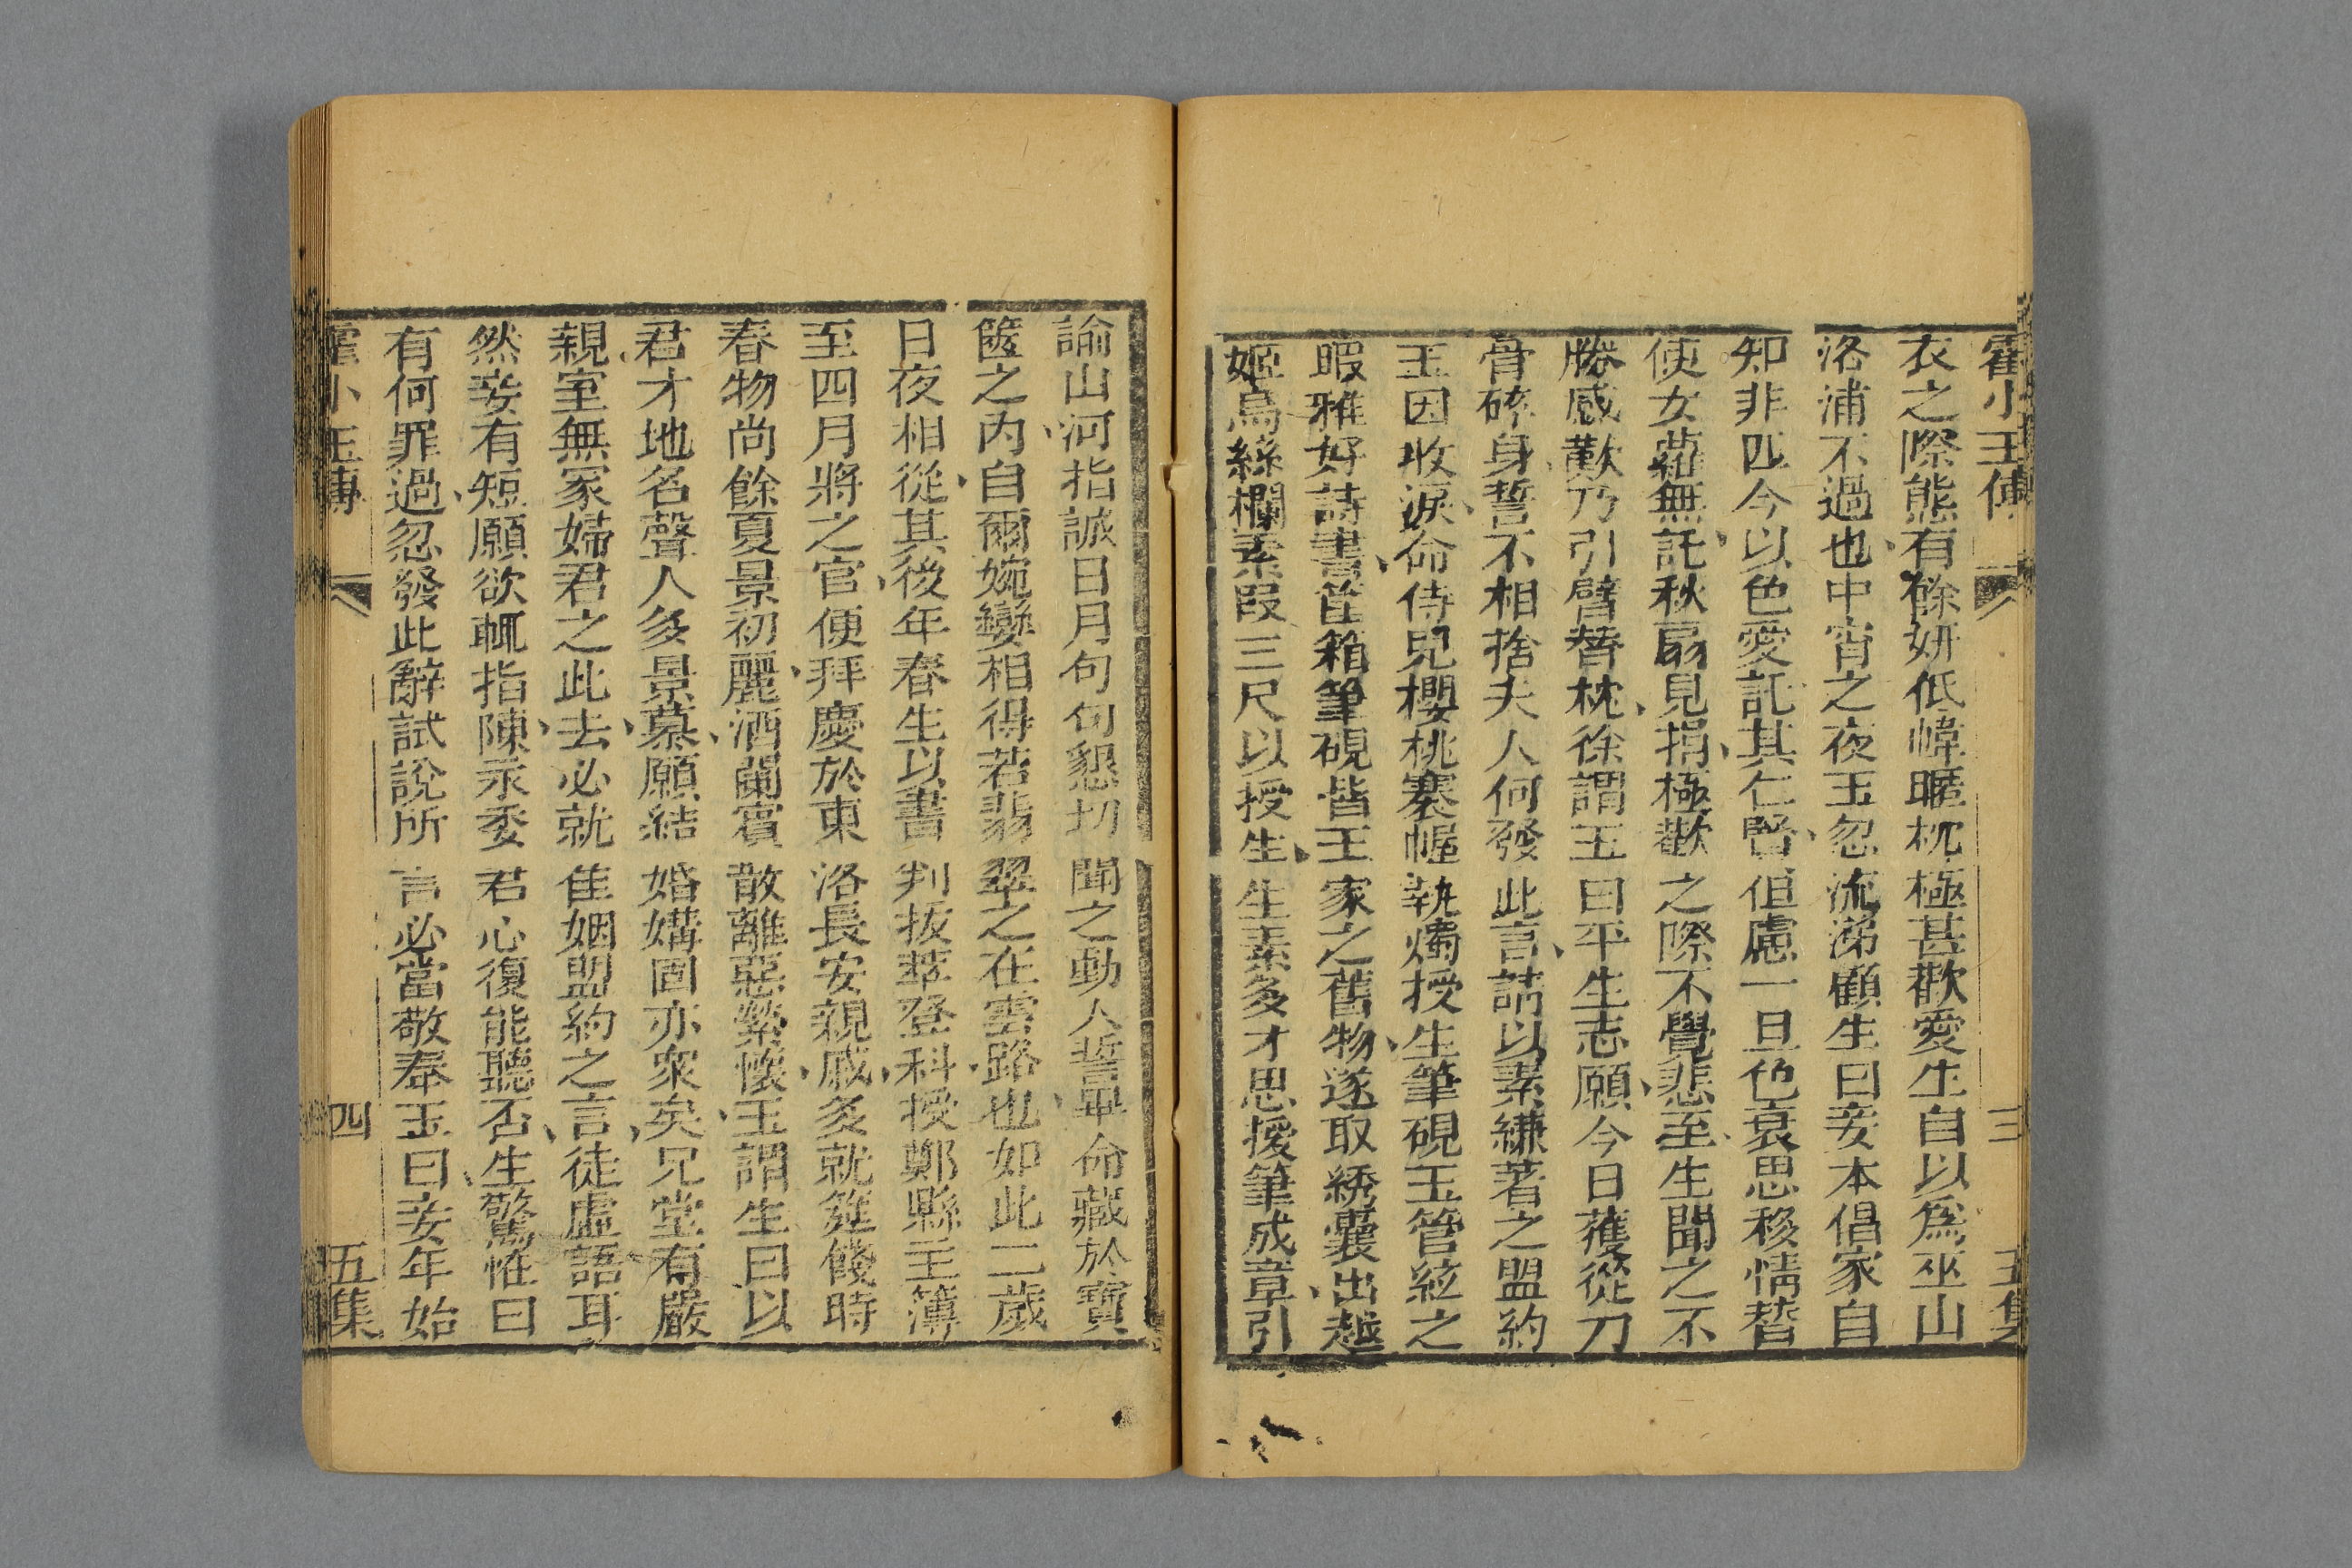 霍小玉傳 三 五集
衣之際態有餘妍低幃暱枕極甚歡愛生自以爲巫山
洛浦不過也中宵之夜玉忽流涕顧生曰妾本倡家自
知非匹今以色愛託其仁賢但慮一旦色衰思移情替
使女蘿無託秋扇見捐極歡之際不覺悲至生聞之不
勝感歎乃引臂替枕徐謂玉曰平生志願今日獲從刀
骨碎身誓不相捨夫人何發此言請以素縑著之盟約
玉因收淚命侍兒櫻桃褰幄執燭授生筆硯玉管絃之
暇雅好詩書筐箱筆硯皆王家之舊物遂取綉囊出越
姬烏絲欄素叚三尺以授生生素多才思援筆成章引
諭山河指誠日月句句懇切聞之動人誓畢命藏於寶
篋之內自爾婉孌相得若翡翠之在雲路也如此二歲
日夜相從其後年春生以書判拔萃登科授鄭縣主簿
至四月將之官便拜慶於東洛長安親戚多就筵餞時
春物尚餘夏景初麗酒闌賓散離惡縈懷玉謂生曰以
君才地名聲人多景慕願結婚媾固亦衆矣兄堂有嚴
親室無冢婦君之此去必就隹姻盟約之言徒虛語耳
然妾有短願欲輒指陳永委君心復能聽否生驚恠曰
有何罪過忽發此辭試說所言必當敬奉玉曰妾年始
霍小玉傳 四 五集